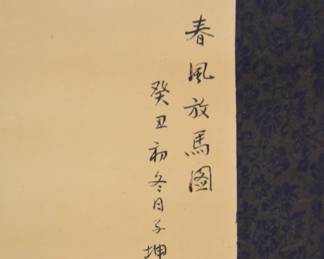 春風放馬图
癸丑初冬日子坤